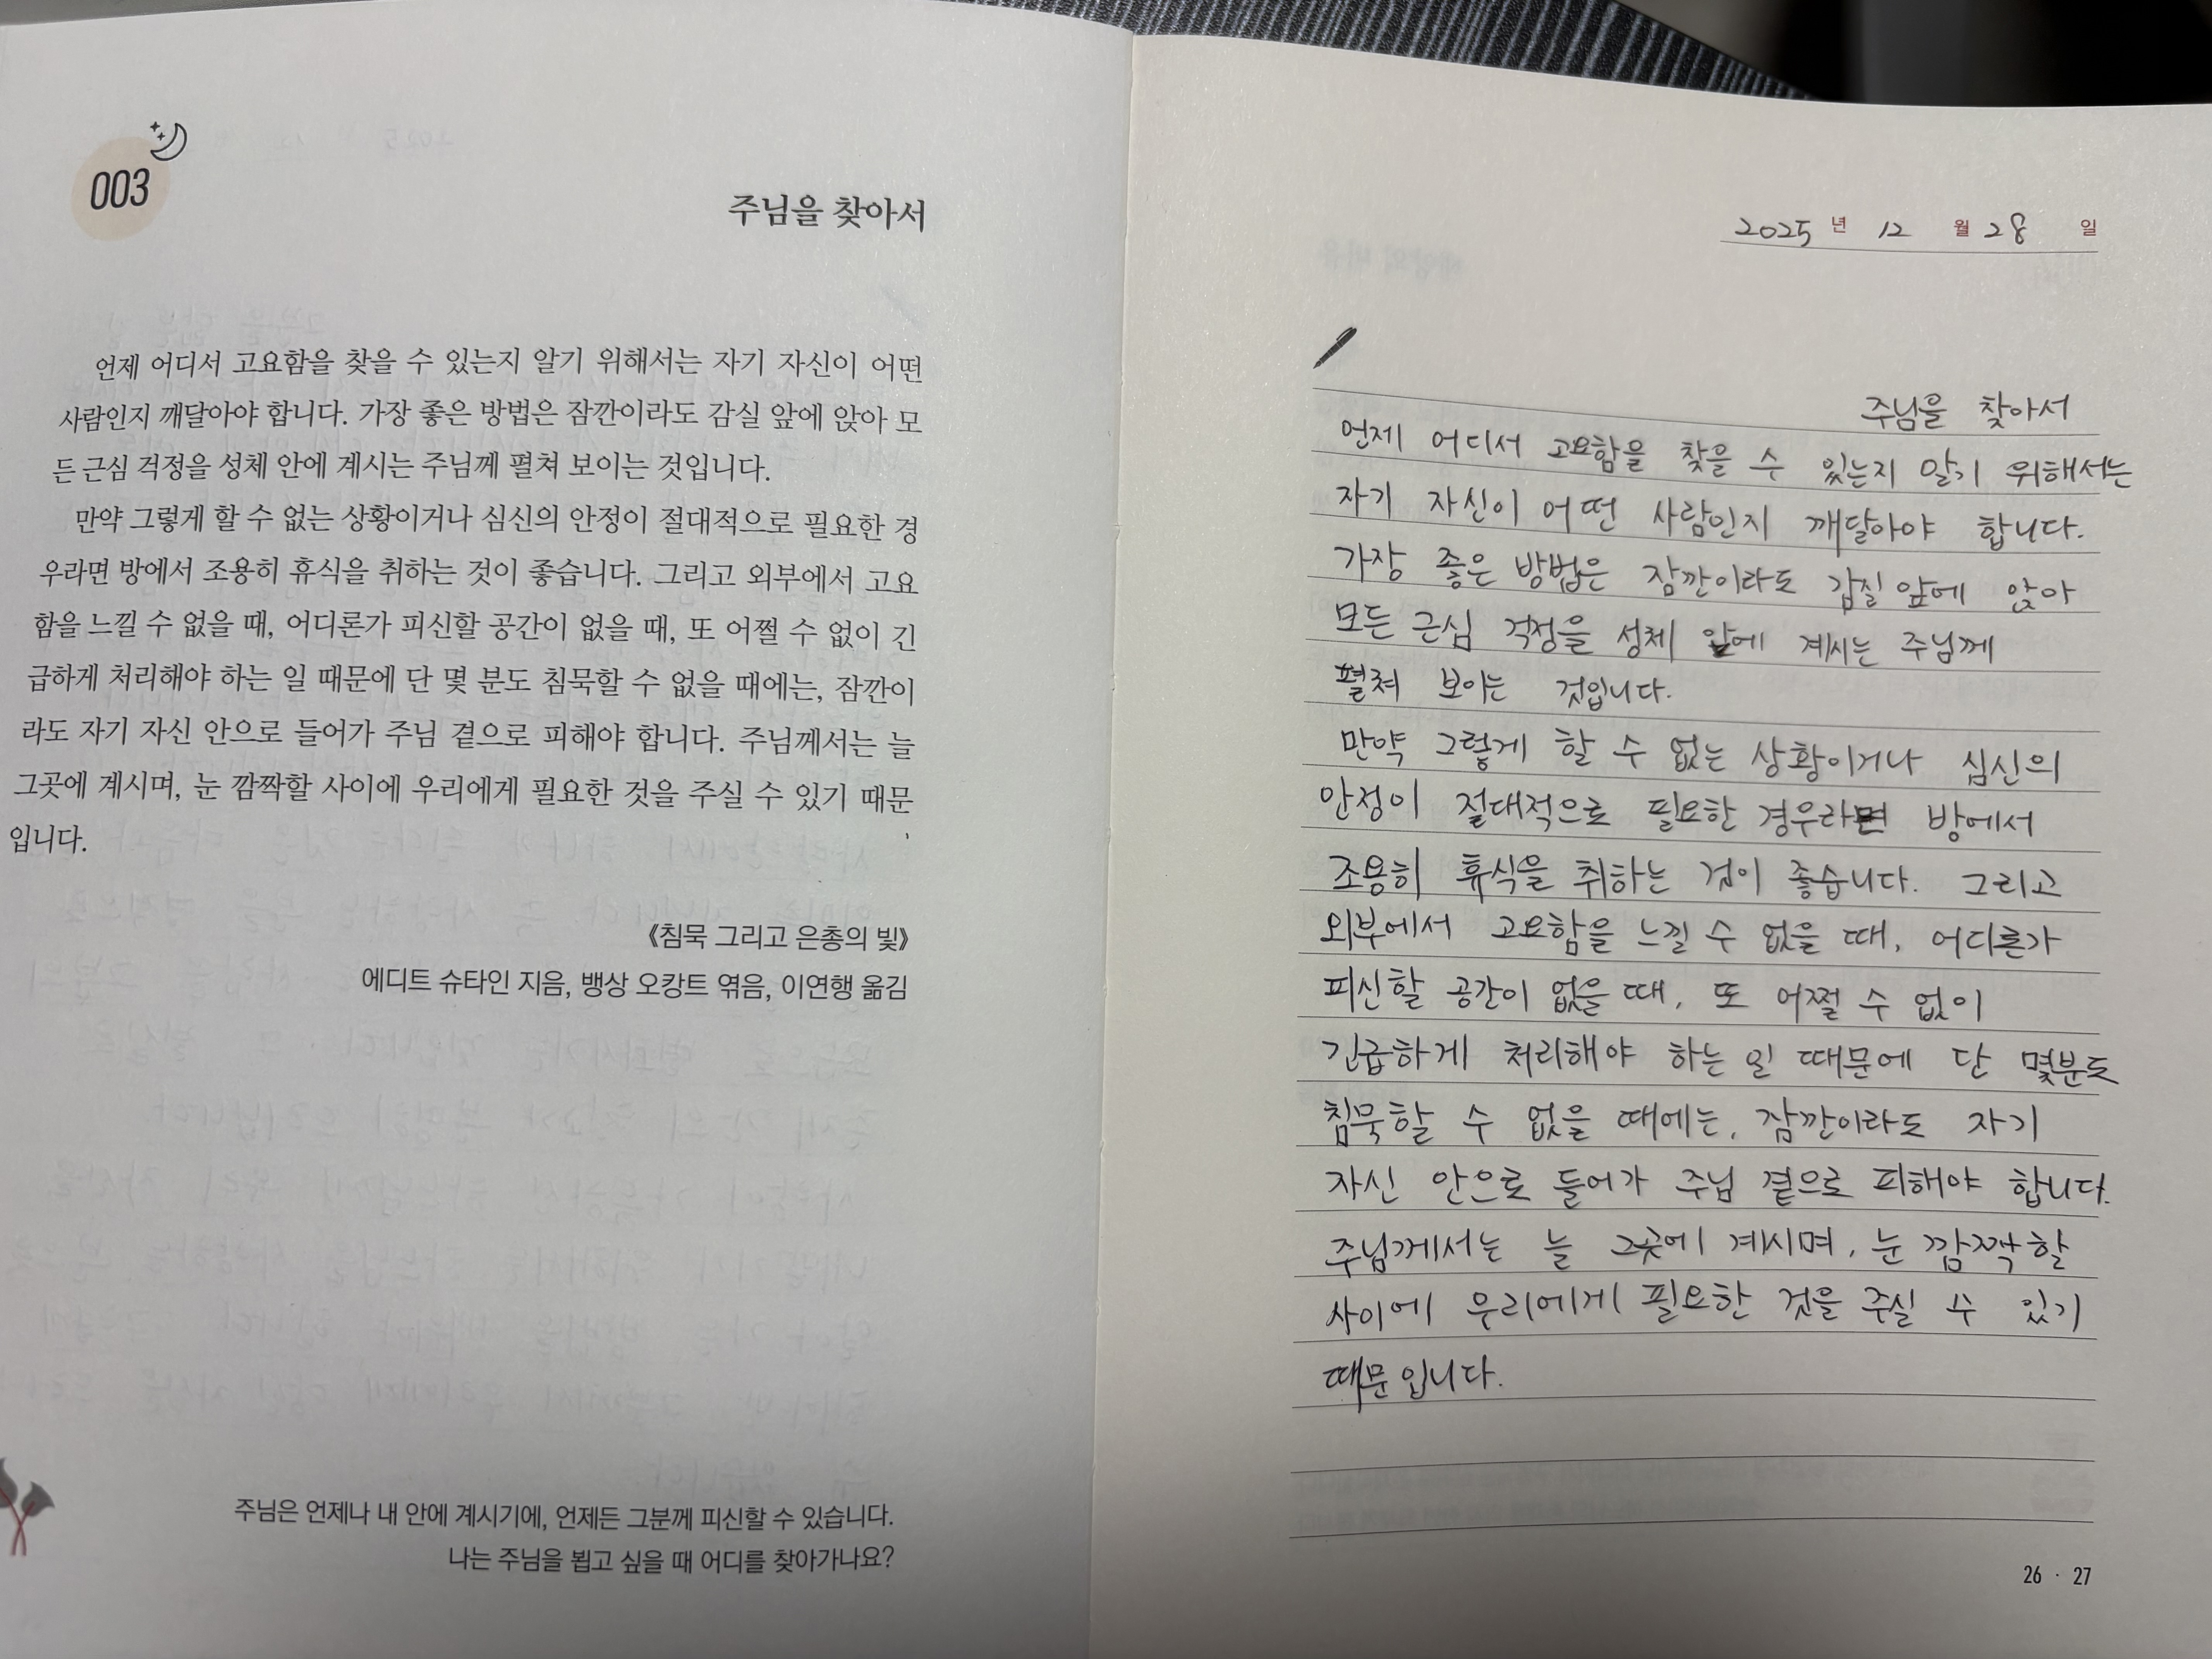 003
주님을 찾아서
언제 어디서 고요함을 찾을 수 있는지 알기 위해서는 자기 자신이 어떤
사람인지 깨달아야 합니다. 가장 좋은 방법은 잠깐이라도 감실 앞에 앉아 모
든 근심 걱정을 성체 안에 계시는 주님께 펼쳐 보이는 것입니다.
만약 그렇게 할 수 없는 상황이거나 심신의 안정이 절대적으로 필요한 경
우라면 방에서 조용히 휴식을 취하는 것이 좋습니다. 그리고 외부에서 고요
함을 느낄 수 없을 때, 어디론가 피신할 공간이 없을 때, 또 어쩔 수 없이 긴
급하게 처리해야 하는 일 때문에 단 몇 분도 침묵할 수 없을 때에는, 잠깐이
라도 자기 자신 안으로 들어가 주님 곁으로 피해야 합니다. 주님께서는 늘
그곳에 계시며, 눈 깜짝할 사이에 우리에게 필요한 것을 주실 수 있기 때문
입니다.
《침묵 그리고 은총의 빛》
에디트 슈타인 지음, 뱅상 오캉트 엮음, 이연행 옮김
주님은 언제나 내 안에 계시기에, 언제든 그분께 피신할 수 있습니다.
나는 주님을 뵙고 싶을 때 어디를 찾아가나요?
2025년 12월 28일
주님을 찾아서
언제 어디서 고요함을 찾을 수 있는지 알기 위해서는
자기 자신이 어떤 사람인지 깨달아야 합니다.
가장 좋은 방법은 잠깐이라도 감실 앞에 앉아
모든 근심 걱정을 성체 앞에 계시는 주님께
펼쳐 보이는 것입니다.
만약 그렇게 할 수 없는 상황이거나 심신의
안정이 절대적으로 필요한 경우라면 방에서
조용히 휴식을 취하는 것이 좋습니다. 그리고
외부에서 고요함을 느낄 수 없을 때, 어디론가
피신할 공간이 없을 때, 또 어쩔 수 없이
긴급하게 처리해야 하는 일 때문에 단 몇분도
침묵할 수 없을 때에는, 잠깐이라도 자기
자신 안으로 들어가 주님 곁으로 피해야 합니다.
주님께서는 늘 그곳에 계시며, 눈 깜짝할
사이에 우리에게 필요한 것을 주실 수 있기
때문입니다.
26 · 27